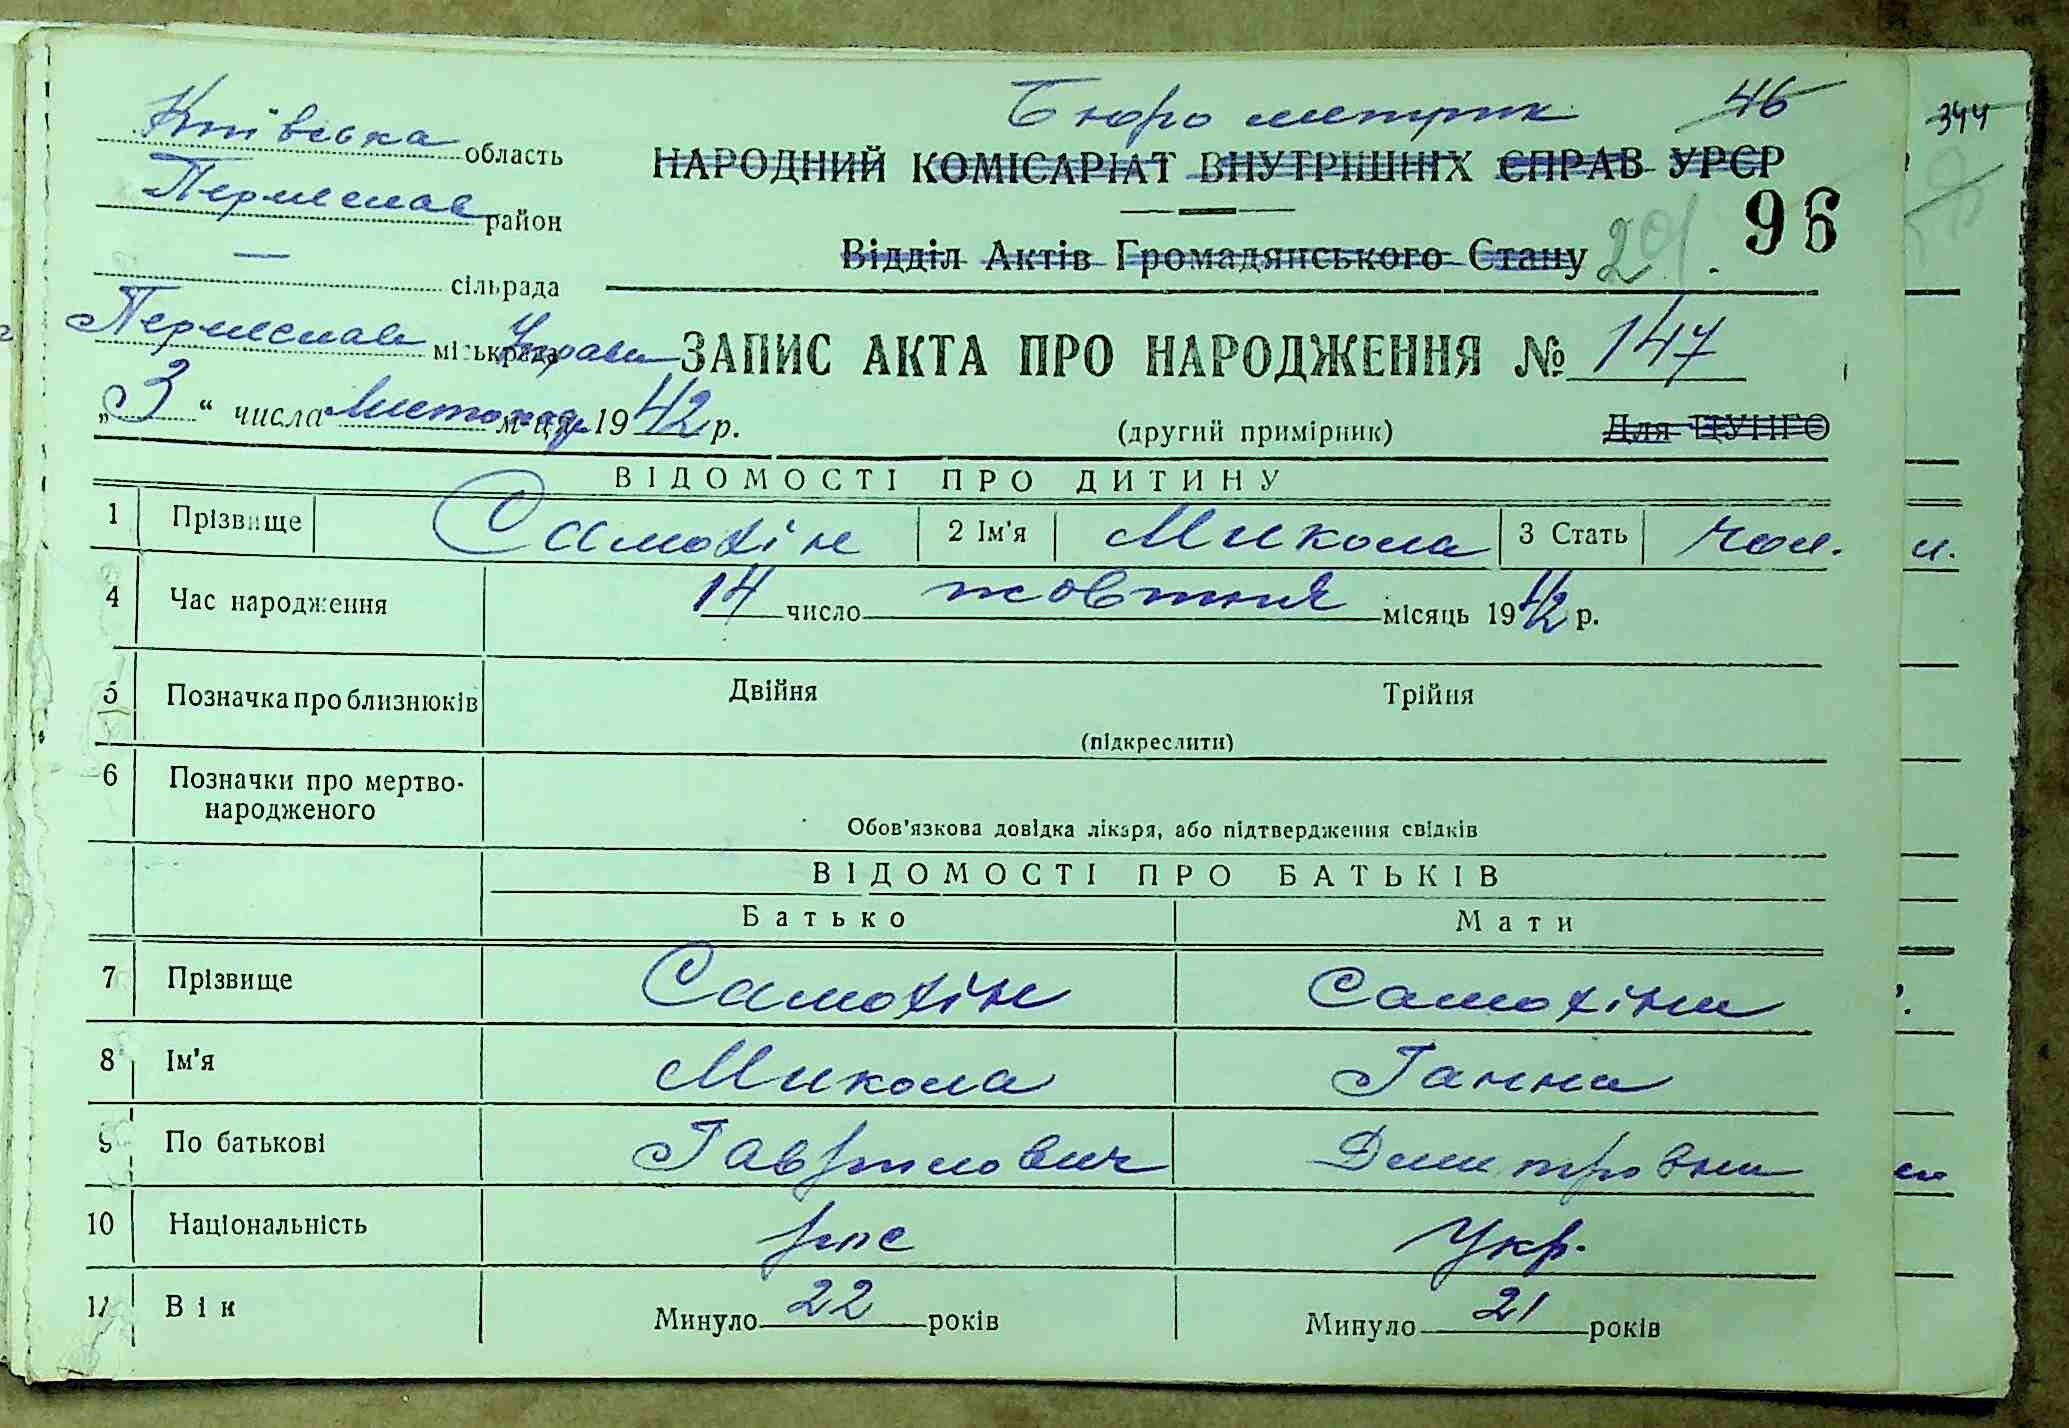 Бюро метрик 46
Київська область
НАРОДНИЙ КОМІСАРІАТ ВНУТРІШНІХ СПРАВ УРСР
344
Переяслав район
96
Відділ Актів Громадянського Стану
— сільрада
Переяслав міськрада Управа
ЗАПИС АКТА ПРО НАРОДЖЕННЯ № 147
„3“ числа Листопада м-ця 1942 р.
(другий примірник) Для ЦУНГО
ВІДОМОСТІ ПРО ДИТИНУ
1 Прізвище Самохін 2 Ім'я Микола 3 Стать чол.
4 Час народження 14 число жовтня місяць 1942 р.
5 Позначка про близнюків Двійня Трійня
(підкреслити)
6 Позначки про мертво-
народженого
Обов'язкова довідка лікаря, або підтвердження свідків
ВІДОМОСТІ ПРО БАТЬКІВ
Батько Мати
7 Прізвище Самохін Самохіна
8 Ім'я Микола Ганна
9 По батькові Гаврилович Дмитровна
10 Національність рус Укр.
11 Вік Минуло 22 років Минуло 21 років